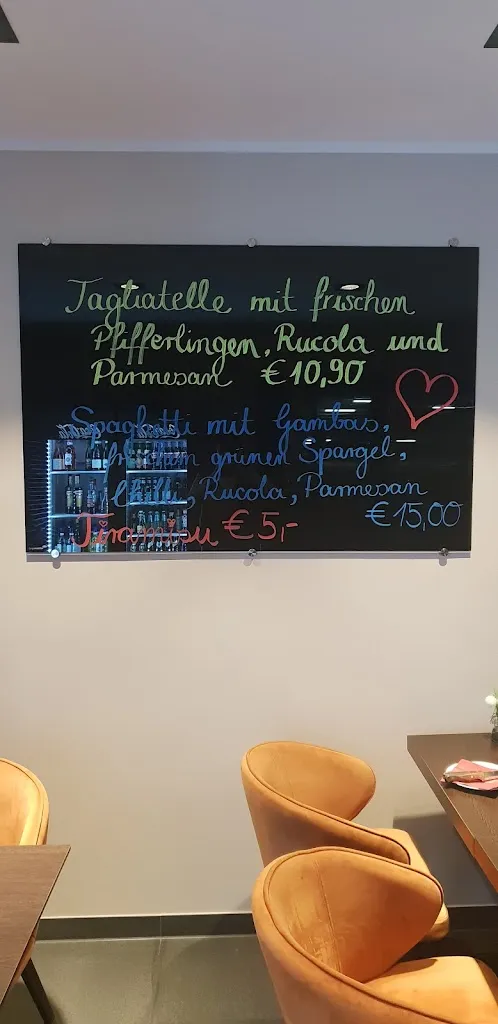 Tagliatelle mit frischen
Pfifferlingen, Rucola und
Parmesan €10,90
Spaghetti mit Gambas,
frischem grünen Spargel,
Chili, Rucola, Parmesan
€15,00
Tiramisu €5,-